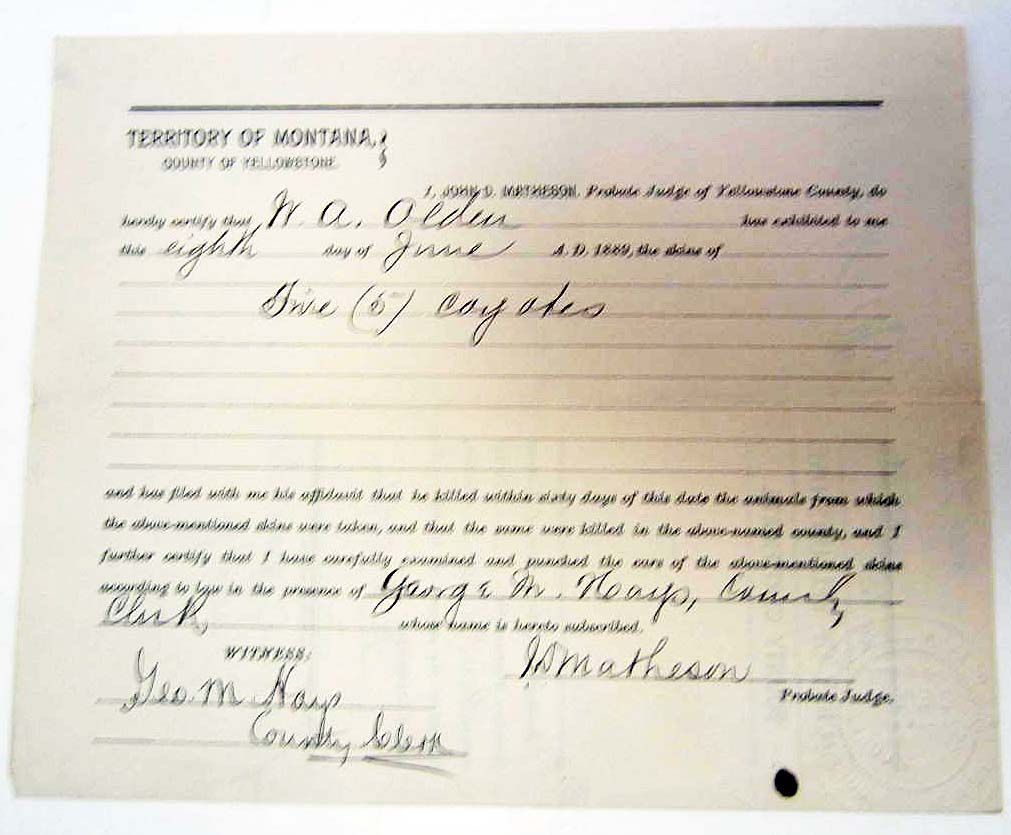 TERRITORY OF MONTANA,
COUNTY OF YELLOWSTONE.
I, JOHN D. MATHESON, Probate Judge of Yellowstone County, do
hereby certify that W. A. Olden has exhibited to me
this eighth day of June A. D. 1889, the skins of
Five (5) Coyotes
and has filed with me his affidavit that he killed within sixty days of this date the animals from which
the above-mentioned skins were taken, and that the same were killed in the above-named county, and I
further certify that I have carefully examined and punched the ears of the above-mentioned skins
according to law in the presence of George M. Hays, County
Clerk, whose name is hereto subscribed.
WITNESS:
J D Matheson
Probate Judge.
Geo. M Hays
County Clerk